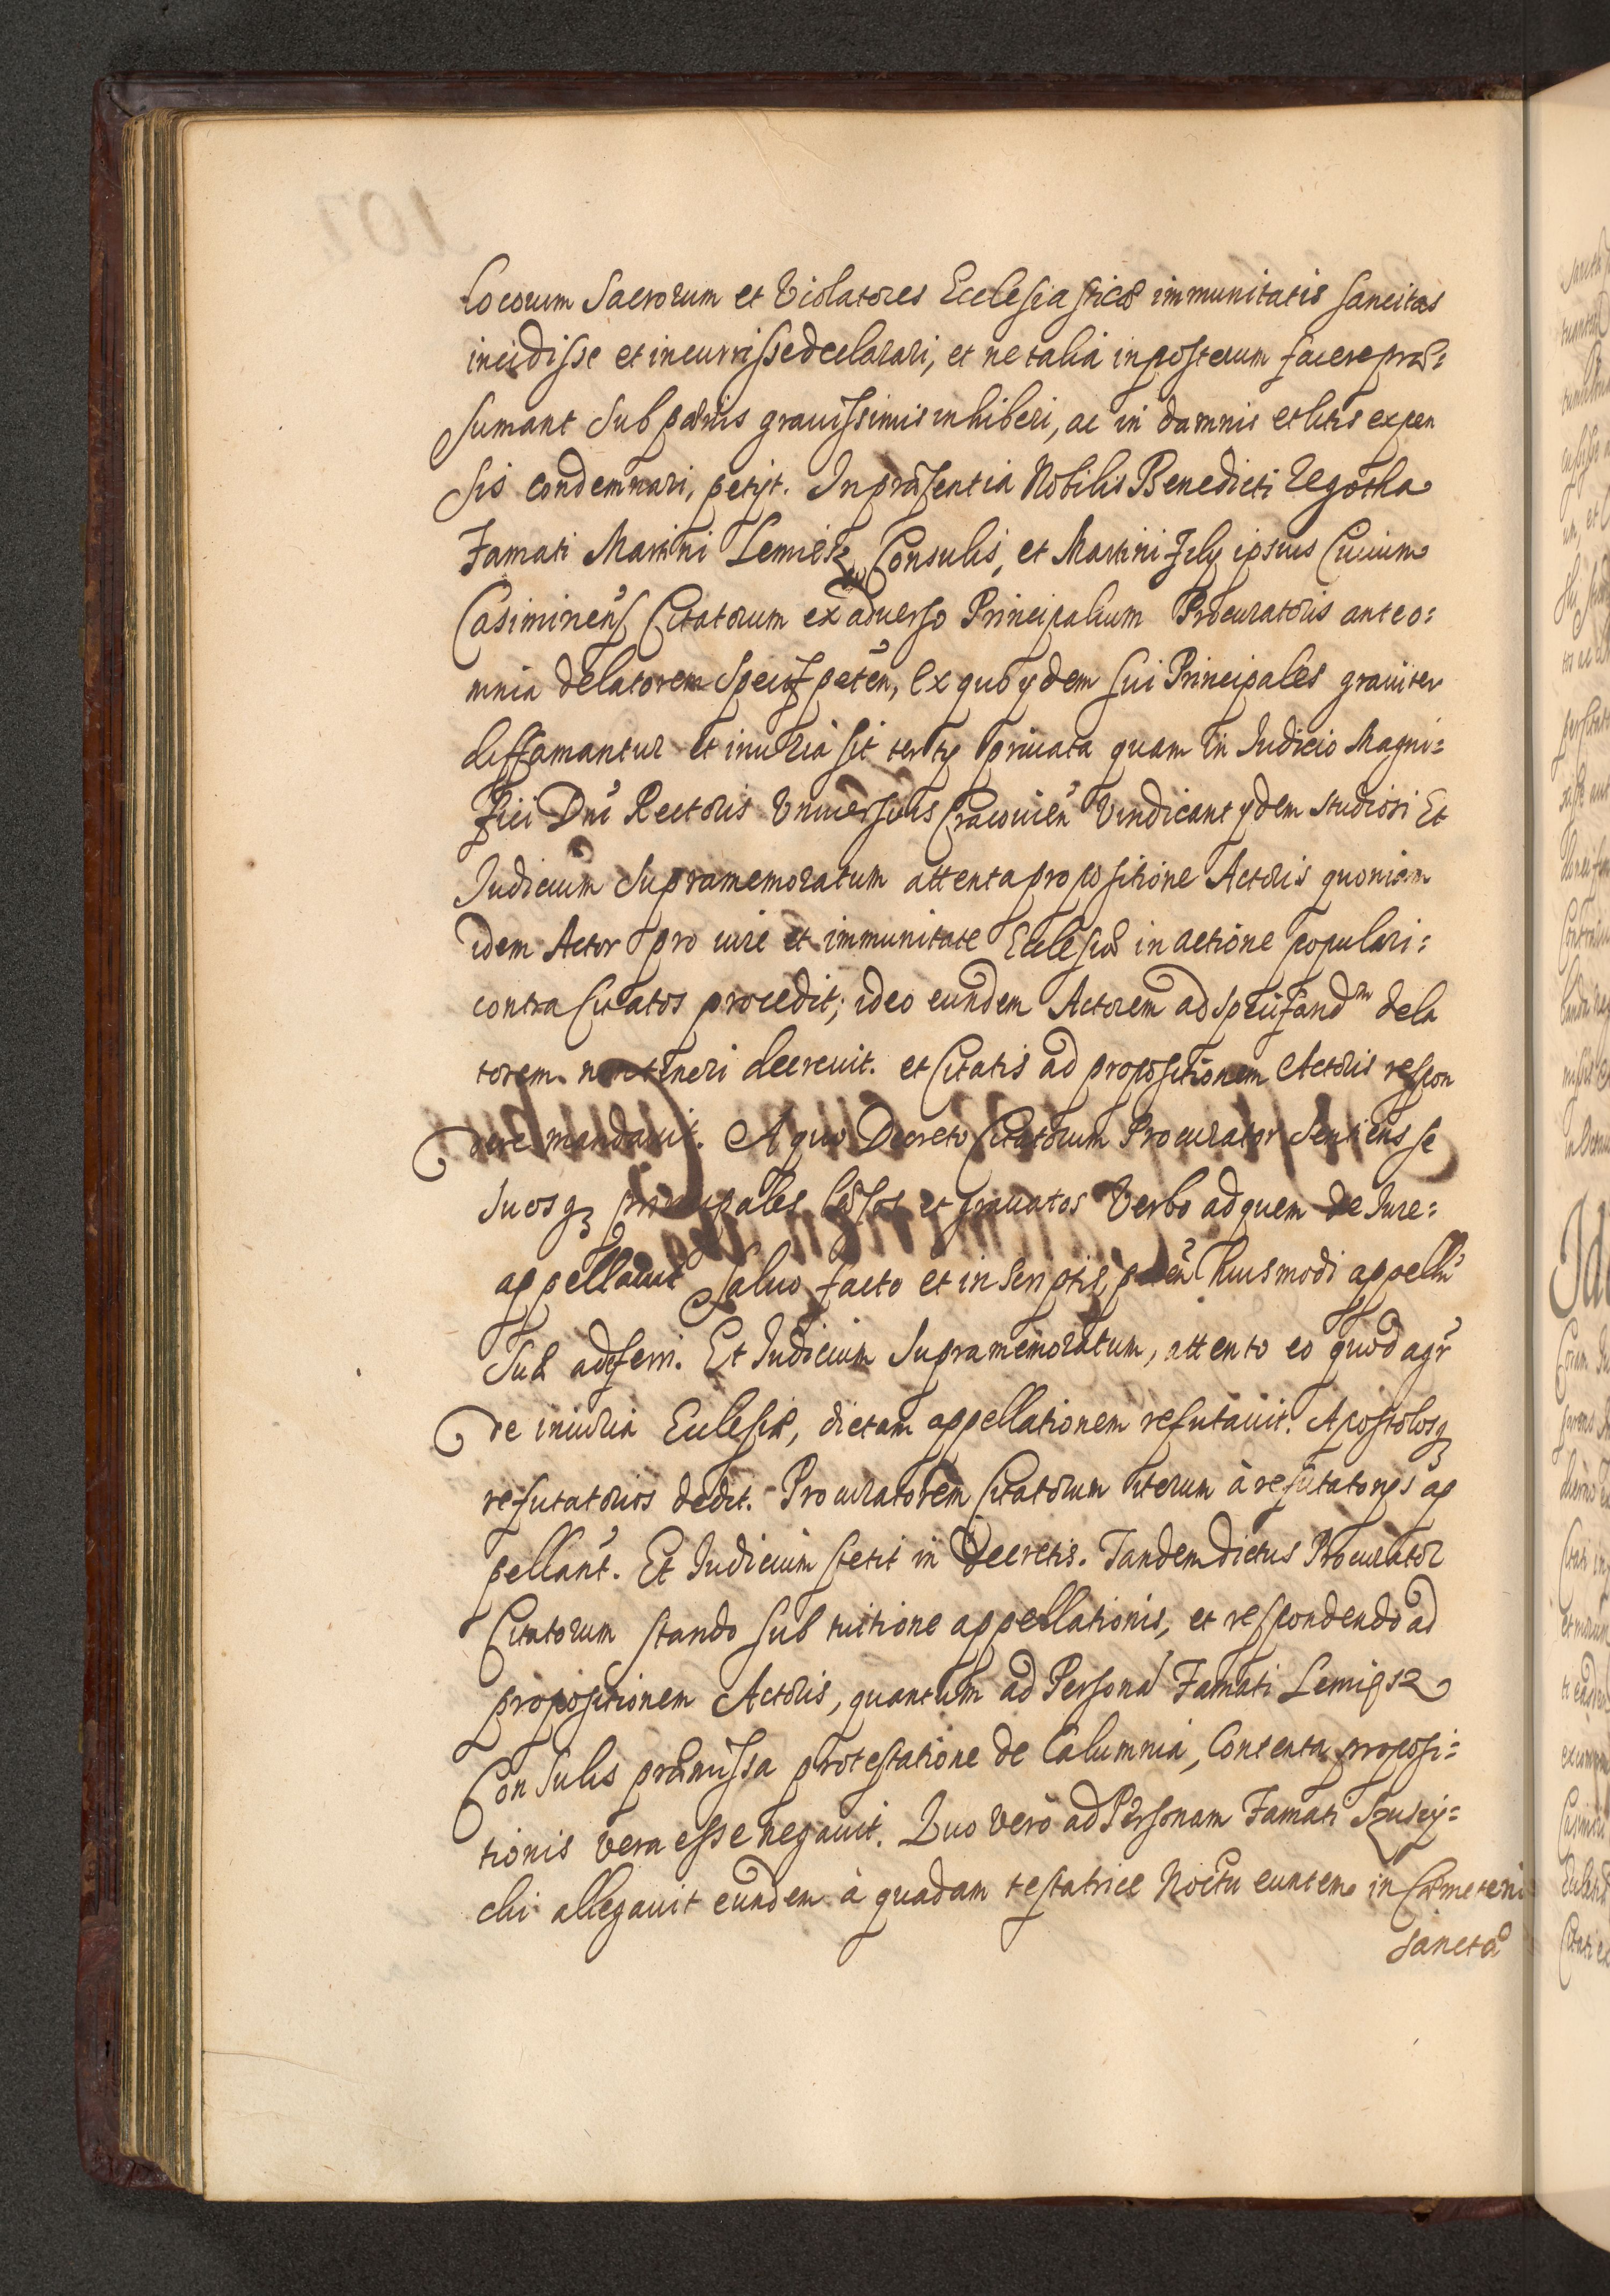 locorum Sacrorum et Violatores Ecclesiasticæ immunitatis sancitas
incidisse et incurrisse declarari, et ne talia inposterum facere præ=
sumant sub pænis grauissimis inhiberi, ac in damnis et litis expen
sis condemnari, petijt. In præsentia Nobilis Benedicti Zegotha
Famati Martini Lemiesz Consulis, et Martini Filij ipsius Ciuium
Casimirien̄ Citatorum ex aduerso Principalium Procuratoris ante o=
mnia delatorem specif peten̄, Ex quo ijdem sui Principales grauiter
diffamantur et iniuria sit tertij priuata quam in Iudicio Magni=
fici Dnī Rectoris Vniuersitatis Cracouien̄ Vindicant ijdem studiosi Et
Iudicium Supramemoratum attenta propositione Actoris quoniam
idem Actor pro iure et immunitate Ecclesiæ in actione populari=
contra Citatos procedit; ideo eundem Actorem ad specifand^m dela
torem non teneri decreuit. et Citatis ad propositionem Actoris respon
dere mandauit. A quo Decreto Citatorum Procurator Sentiens se
suosq3 principales læsos et grauatos Verbo ad quem de Iure=
appellauit saluo facto et in Scriptis, peten̄ huiusmodi appellnī
suæ adeferri. Et Iudicium Supramemoratum, attento eo quod agr̄
de iniuria Ecclesiæ, dictam appellationem refutauit. Apostolosq3
refutatorios dedit. Procuratorem Citatorum iterum à refutatorijs ap
pellant̄. Et Iudicium stetit in Decretis. Tandem dictus Procurator
Citatorum stando sub tuitione appellationis, et respondendo ad
propositionem Actoris, quantum ad Personā Famati Lemiesz
Consulis præmissa protestatione de Calumnia, Contenta proposi=
tionis vera esse negauit. Quo vero ad Personam Famati
chi allegauit eundem à quadam testatrice Noctu euntem in Cæmeteri
sanctæ